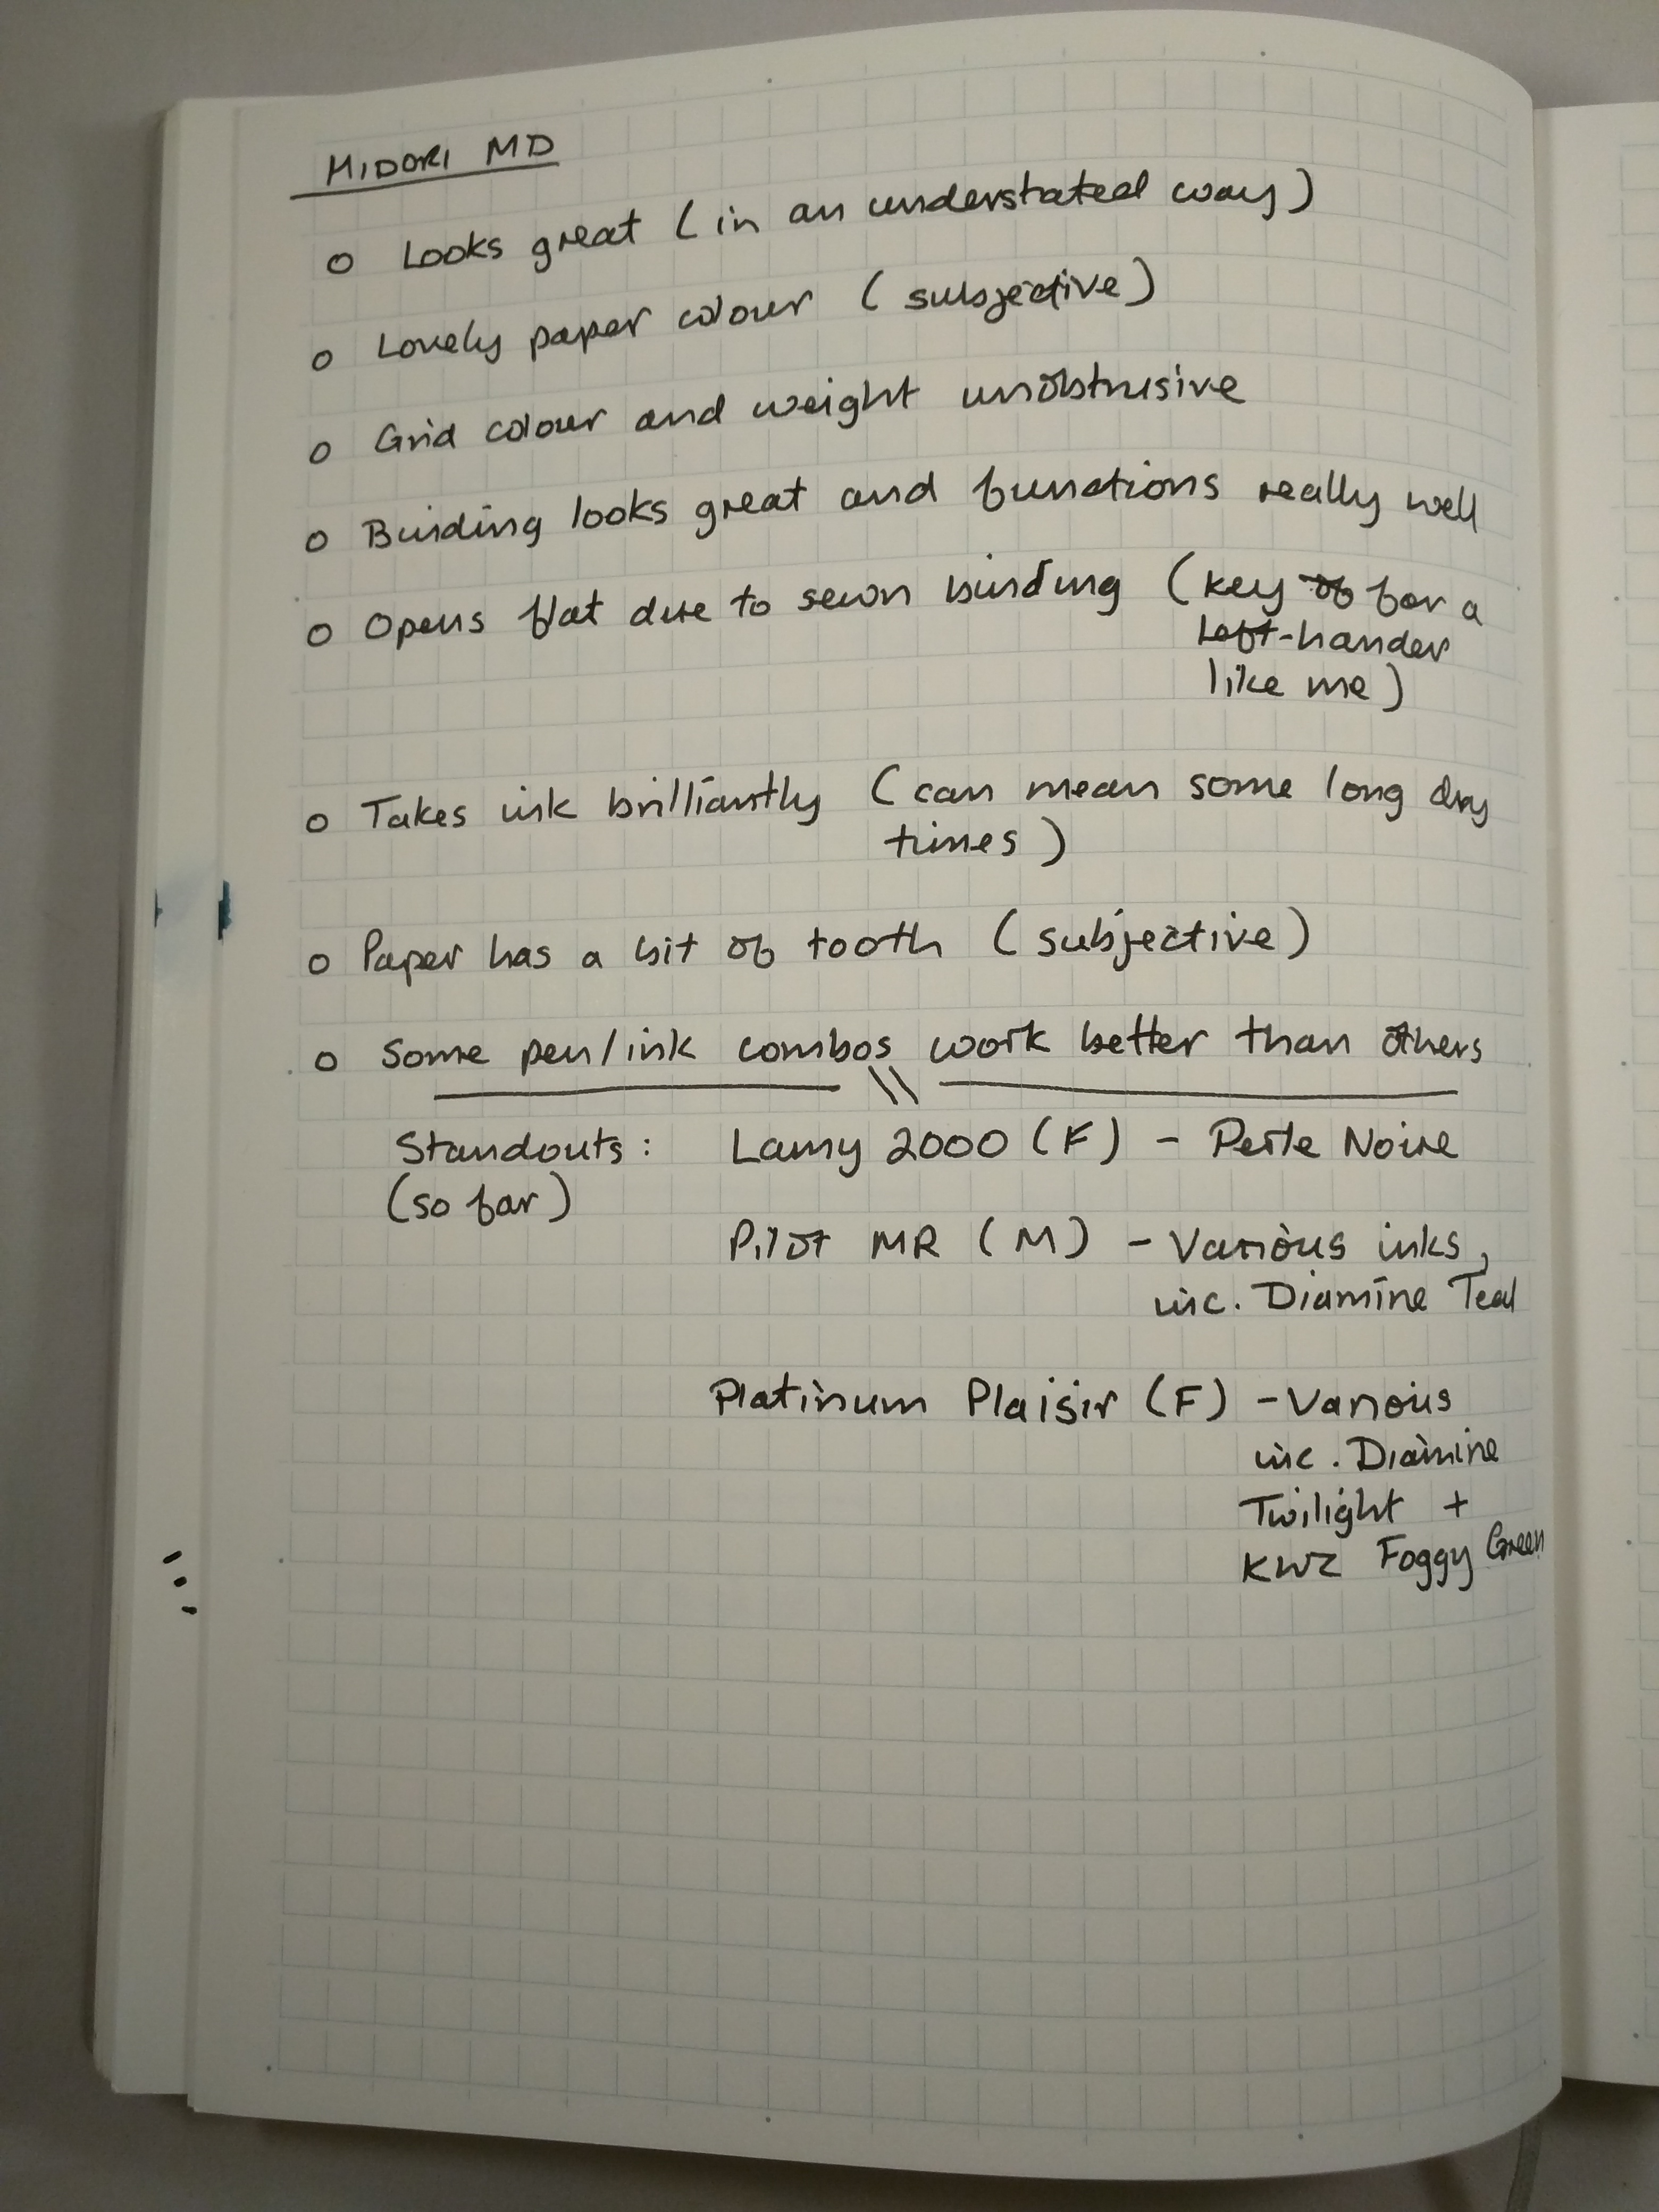 MIDORI MD
o Looks great (in an understated way)
o Lovely paper colour (subjective)
o Grid colour and weight unobtrusive
o Binding looks great and functions really well
o Opens flat due to sewn binding (key of for a
Left-hander
like me)
o Takes ink brilliantly (can mean some long dry
times)
o Paper has a bit of tooth (subjective)
o Some pen/ink combos work better than others
Standouts: Lamy 2000 (F) - Perle Noire
(so far)
Pilot MR (M) - Various inks,
inc. Diamine Teal
Platinum Plaisir (F) - Various
inc. Diamine
Twilight +
KWZ Foggy Green